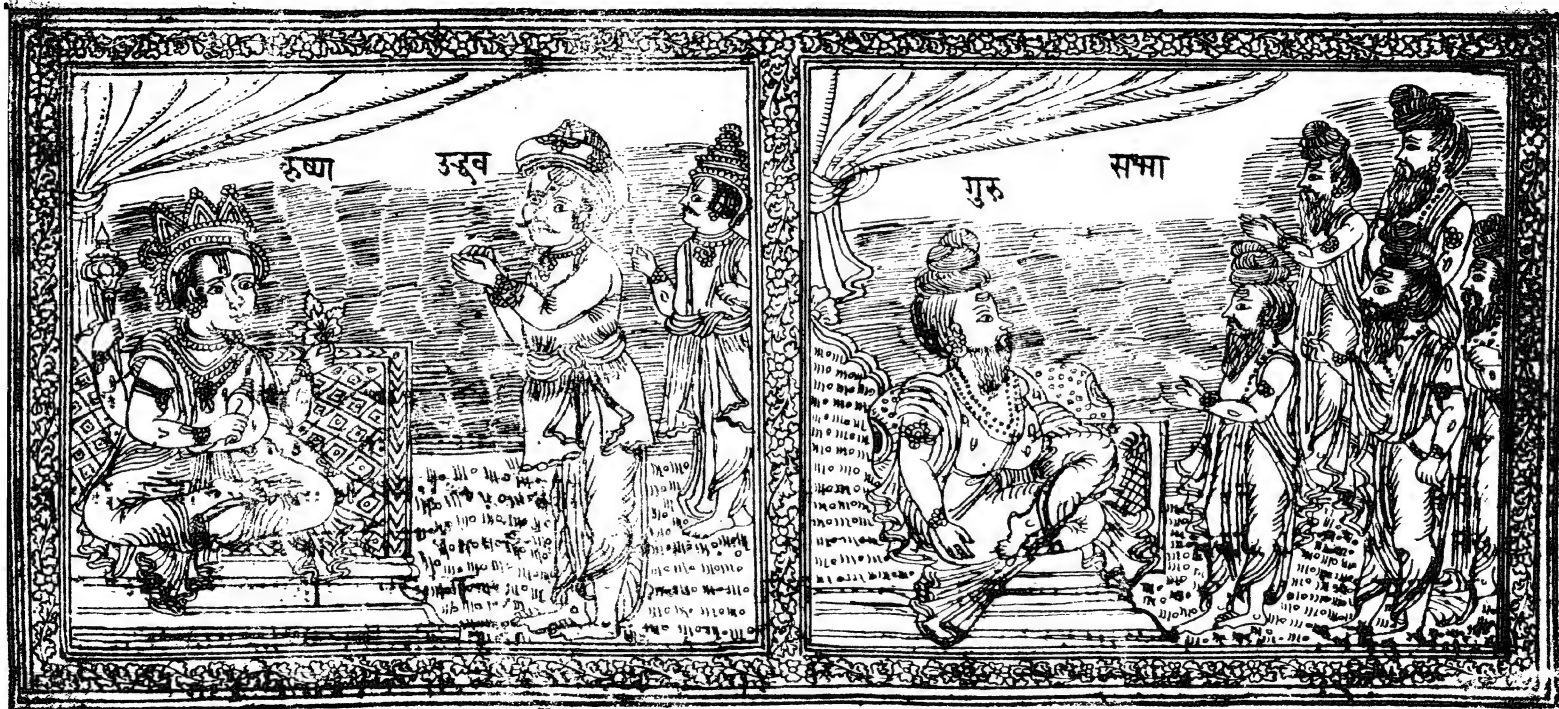 कृष्ण
उद्धव
गुरु
सभा